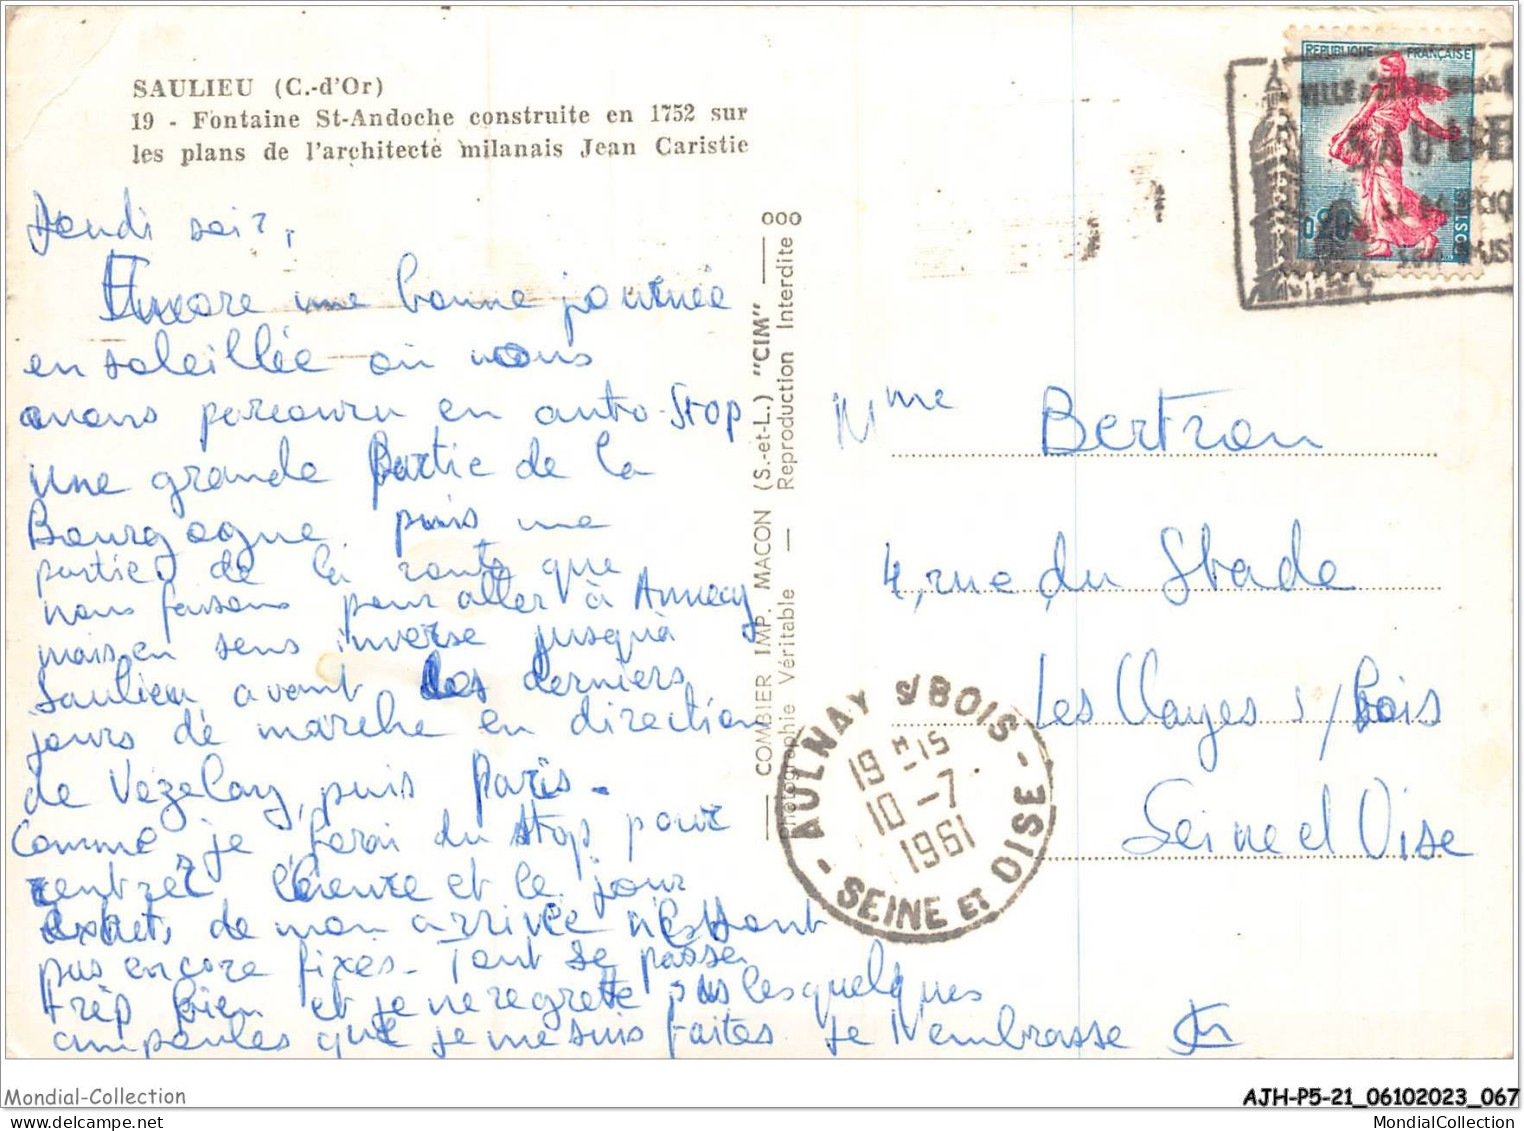 SAULIEU (C.-d'Or)
19 - Fontaine St-Andoche construite en 1752 sur
les plans de l'architecte milanais Jean Caristie
Jeudi soir,
Encore une bonne journée
ensoleillée où nous
avons parcouru en auto-stop
une grande partie de la
Bourgogne puis une
partie de la route que
nous faisons pour aller à Annecy
mais en sens inverse jusqu'à
Saulieu avant les derniers
jours de marche en direction
de Vézelay, puis Paris.
Comme je ferai du stop pour
rentrer l'heure et le jour
exacts de mon arrivée n'est
pas encore fixés. Tout se passe
très bien et je ne regrette pas les quelques
ampoules que je me suis faites Je t'embrasse
COMBIER IMP. MACON (S.-et-L.) "CIM"
Photographie Véritable — Reproduction Interdite
REPUBLIQUE FRANÇAISE
0,20
SAULIE
Mme Bertron
4, rue du Stade
Les Clayes s/bois
Seine et Oise
AULNAY S/BOIS - SEINE ET OISE -
19 H 15
10 -7
1961
Mondial-Collection
AJH-P5-21_06102023_067
MondialCollection